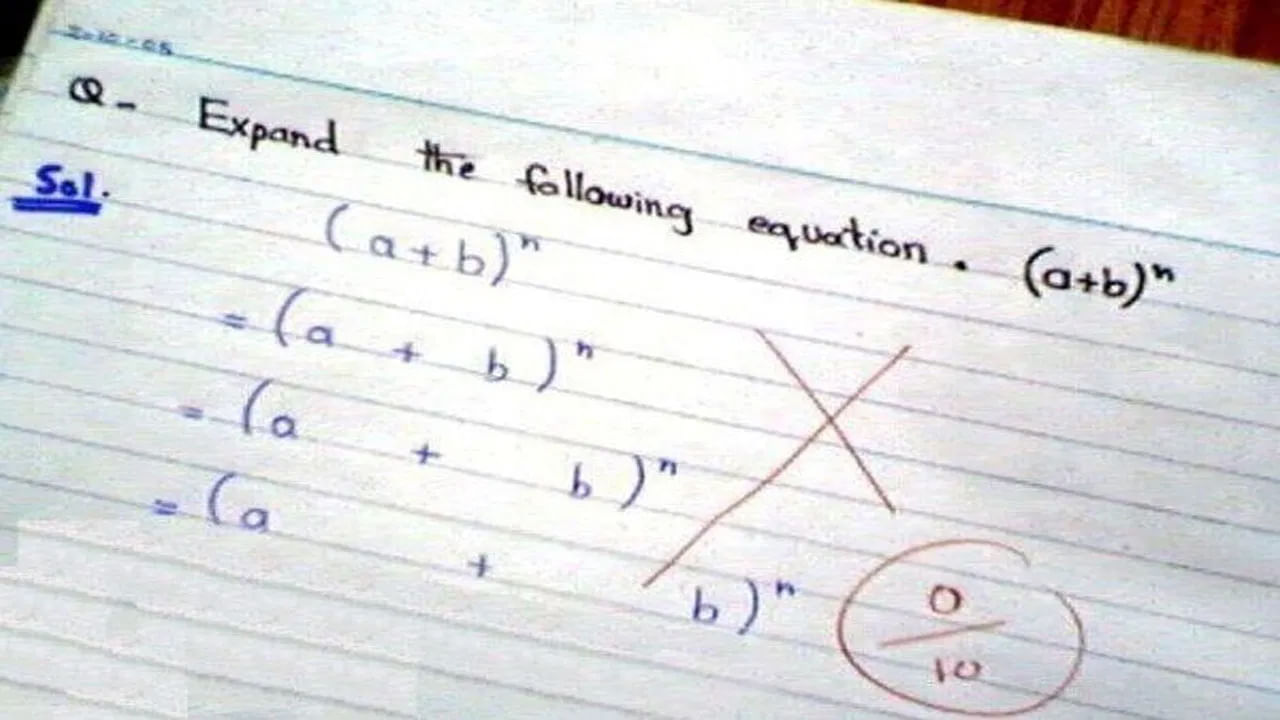 Q- Expand the following equation. (a+b)ⁿ
Sol.
(a+b)ⁿ
= (a + b)ⁿ
= (a + b)ⁿ
= (a + b)ⁿ
0
10